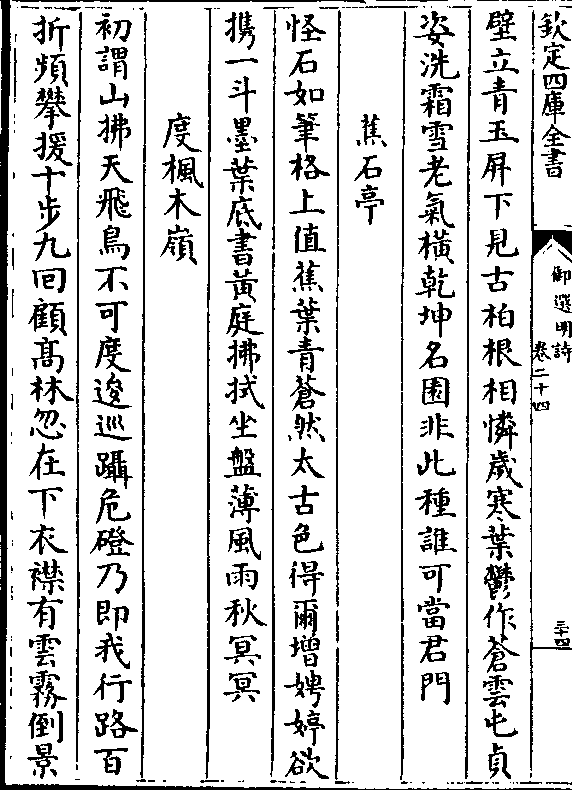 欽定四庫全書
御選明詩
卷二十四
三十四
壁立青玉屏下見古柏根相憐歲寒葉鬱作蒼雲屯貞
姿洗霜雪老氣橫乾坤名園非此種誰可當君門
蕉石亭
怪石如筆格上值蕉葉青蒼然太古色得爾增娉婷欲
携一斗墨葉底書黃庭拂拭坐盤薄風雨秋冥冥
度楓木嶺
初謂山拂天飛鳥不可度逡巡躡危磴乃即我行路百
折頻攀援十步九回顧髙林忽在下衣襟有雲霧倒景